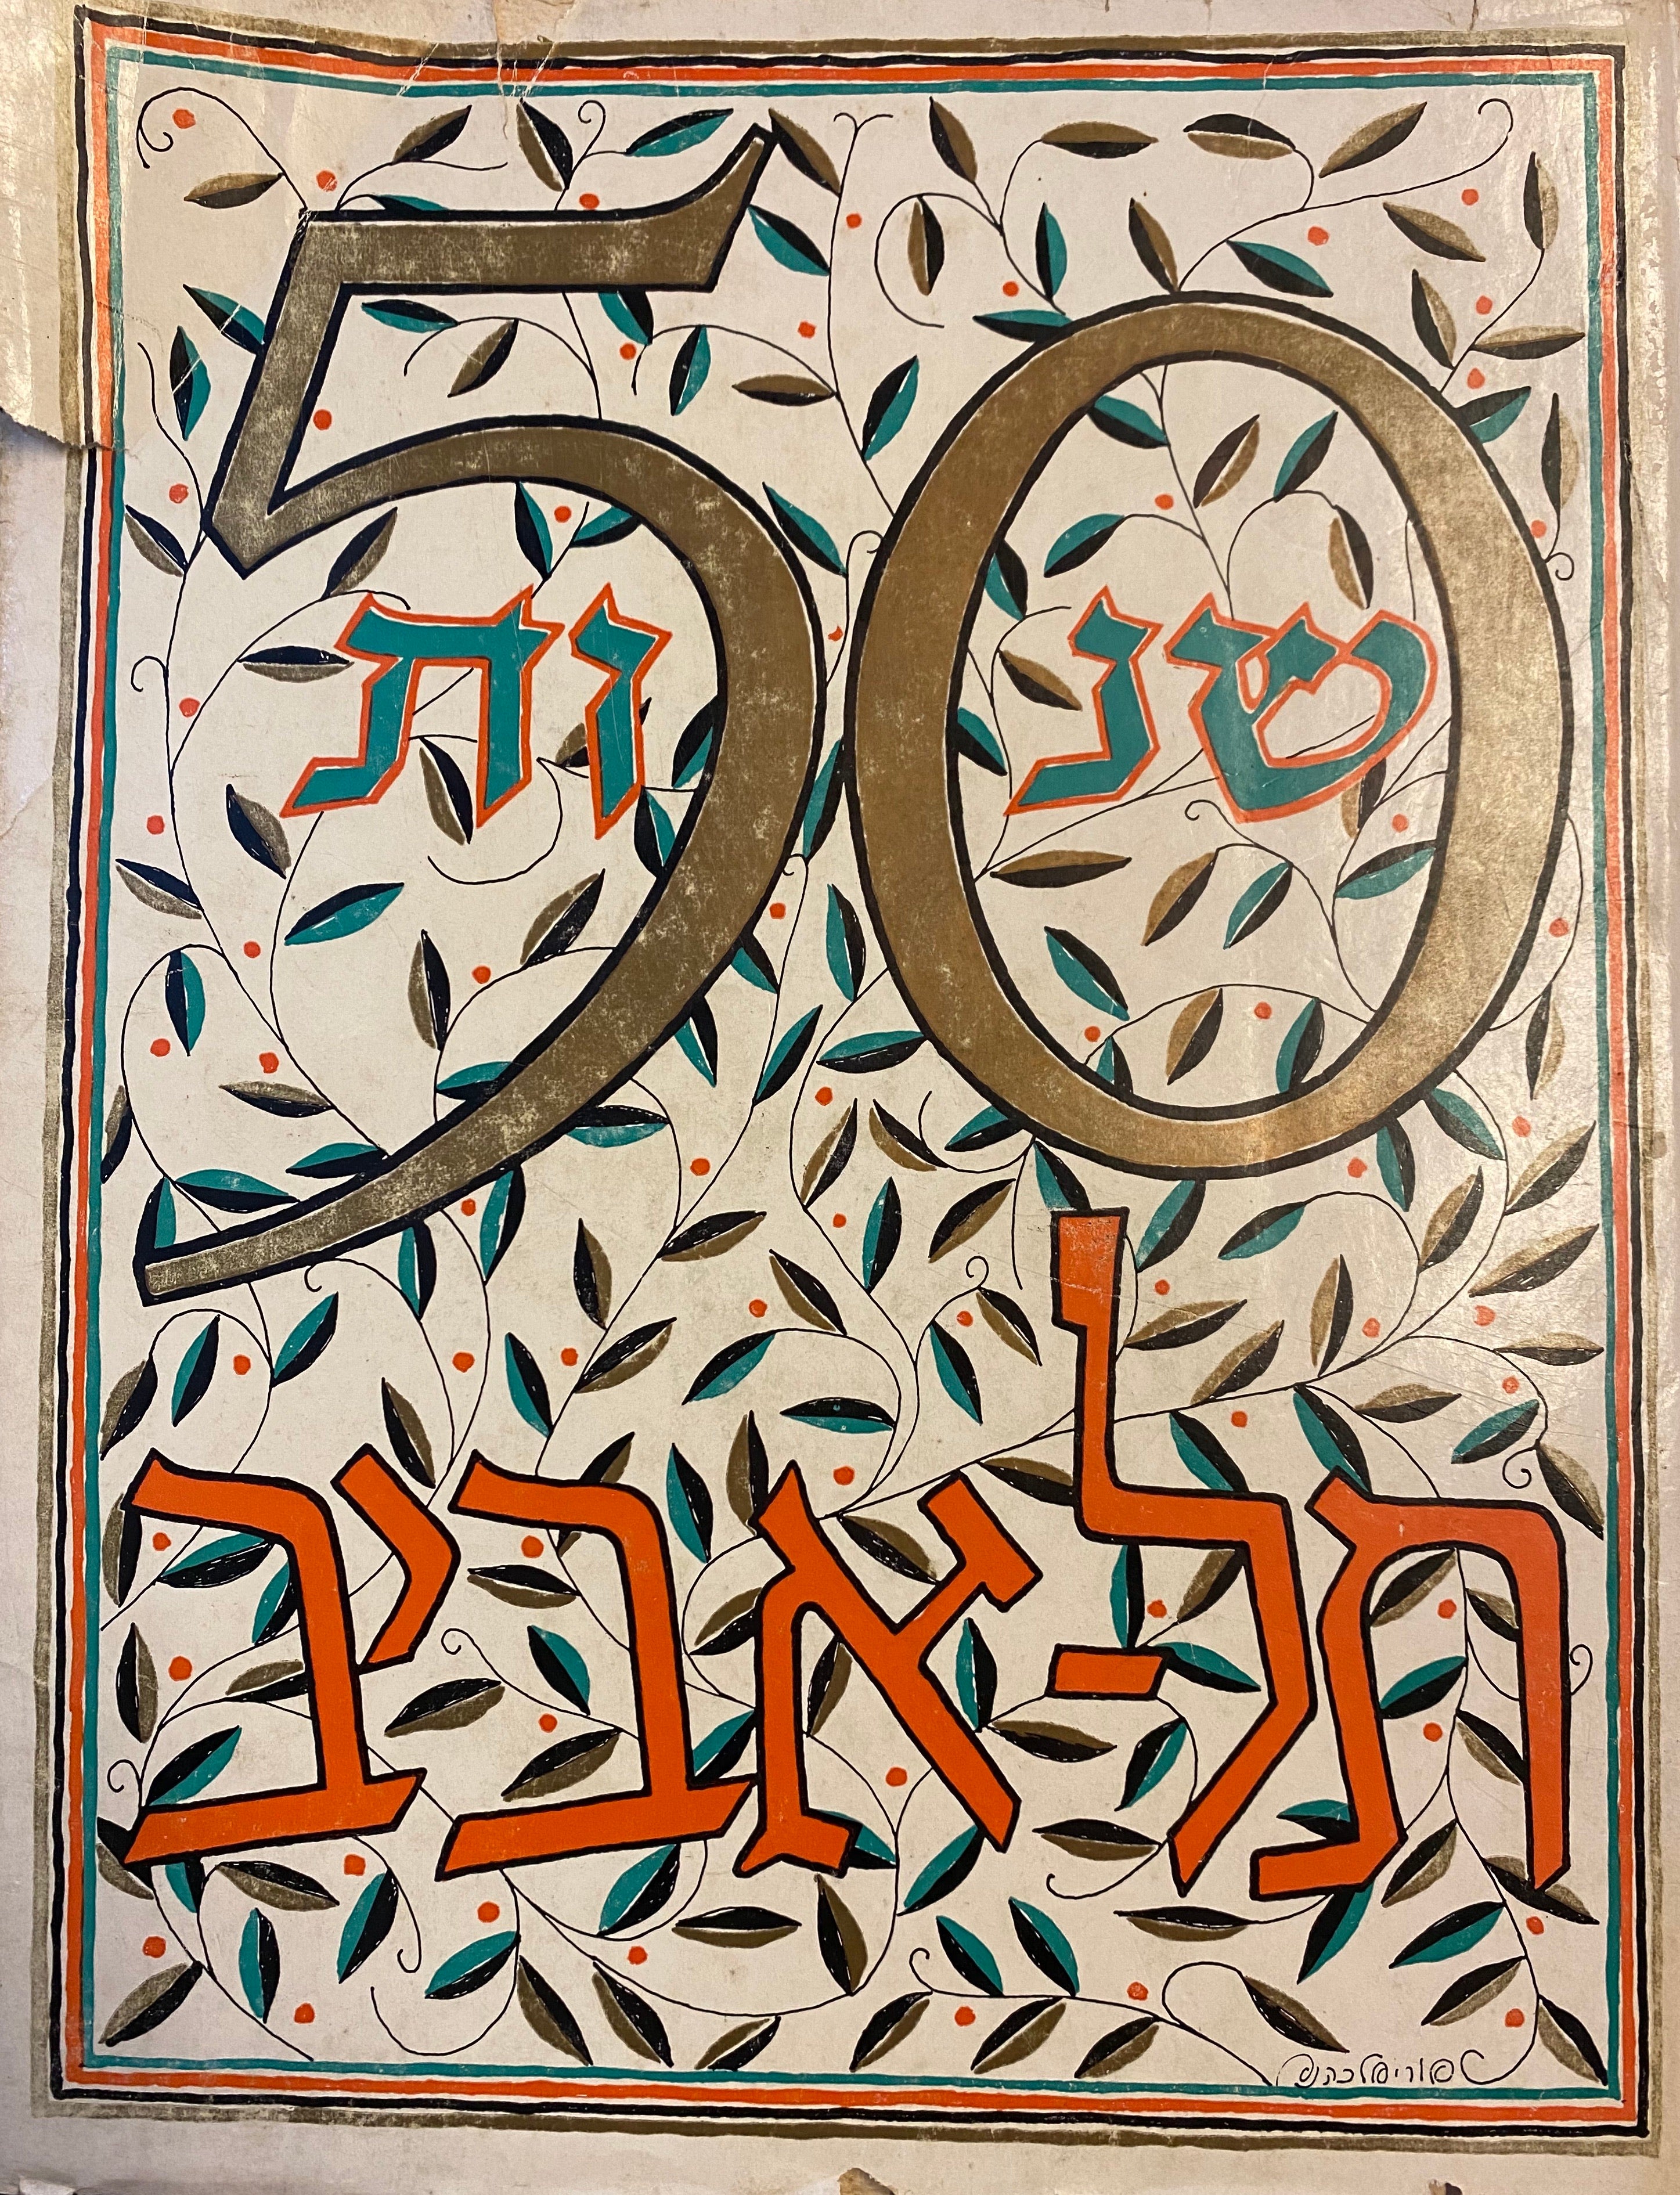 50
שנות
תל-אביב